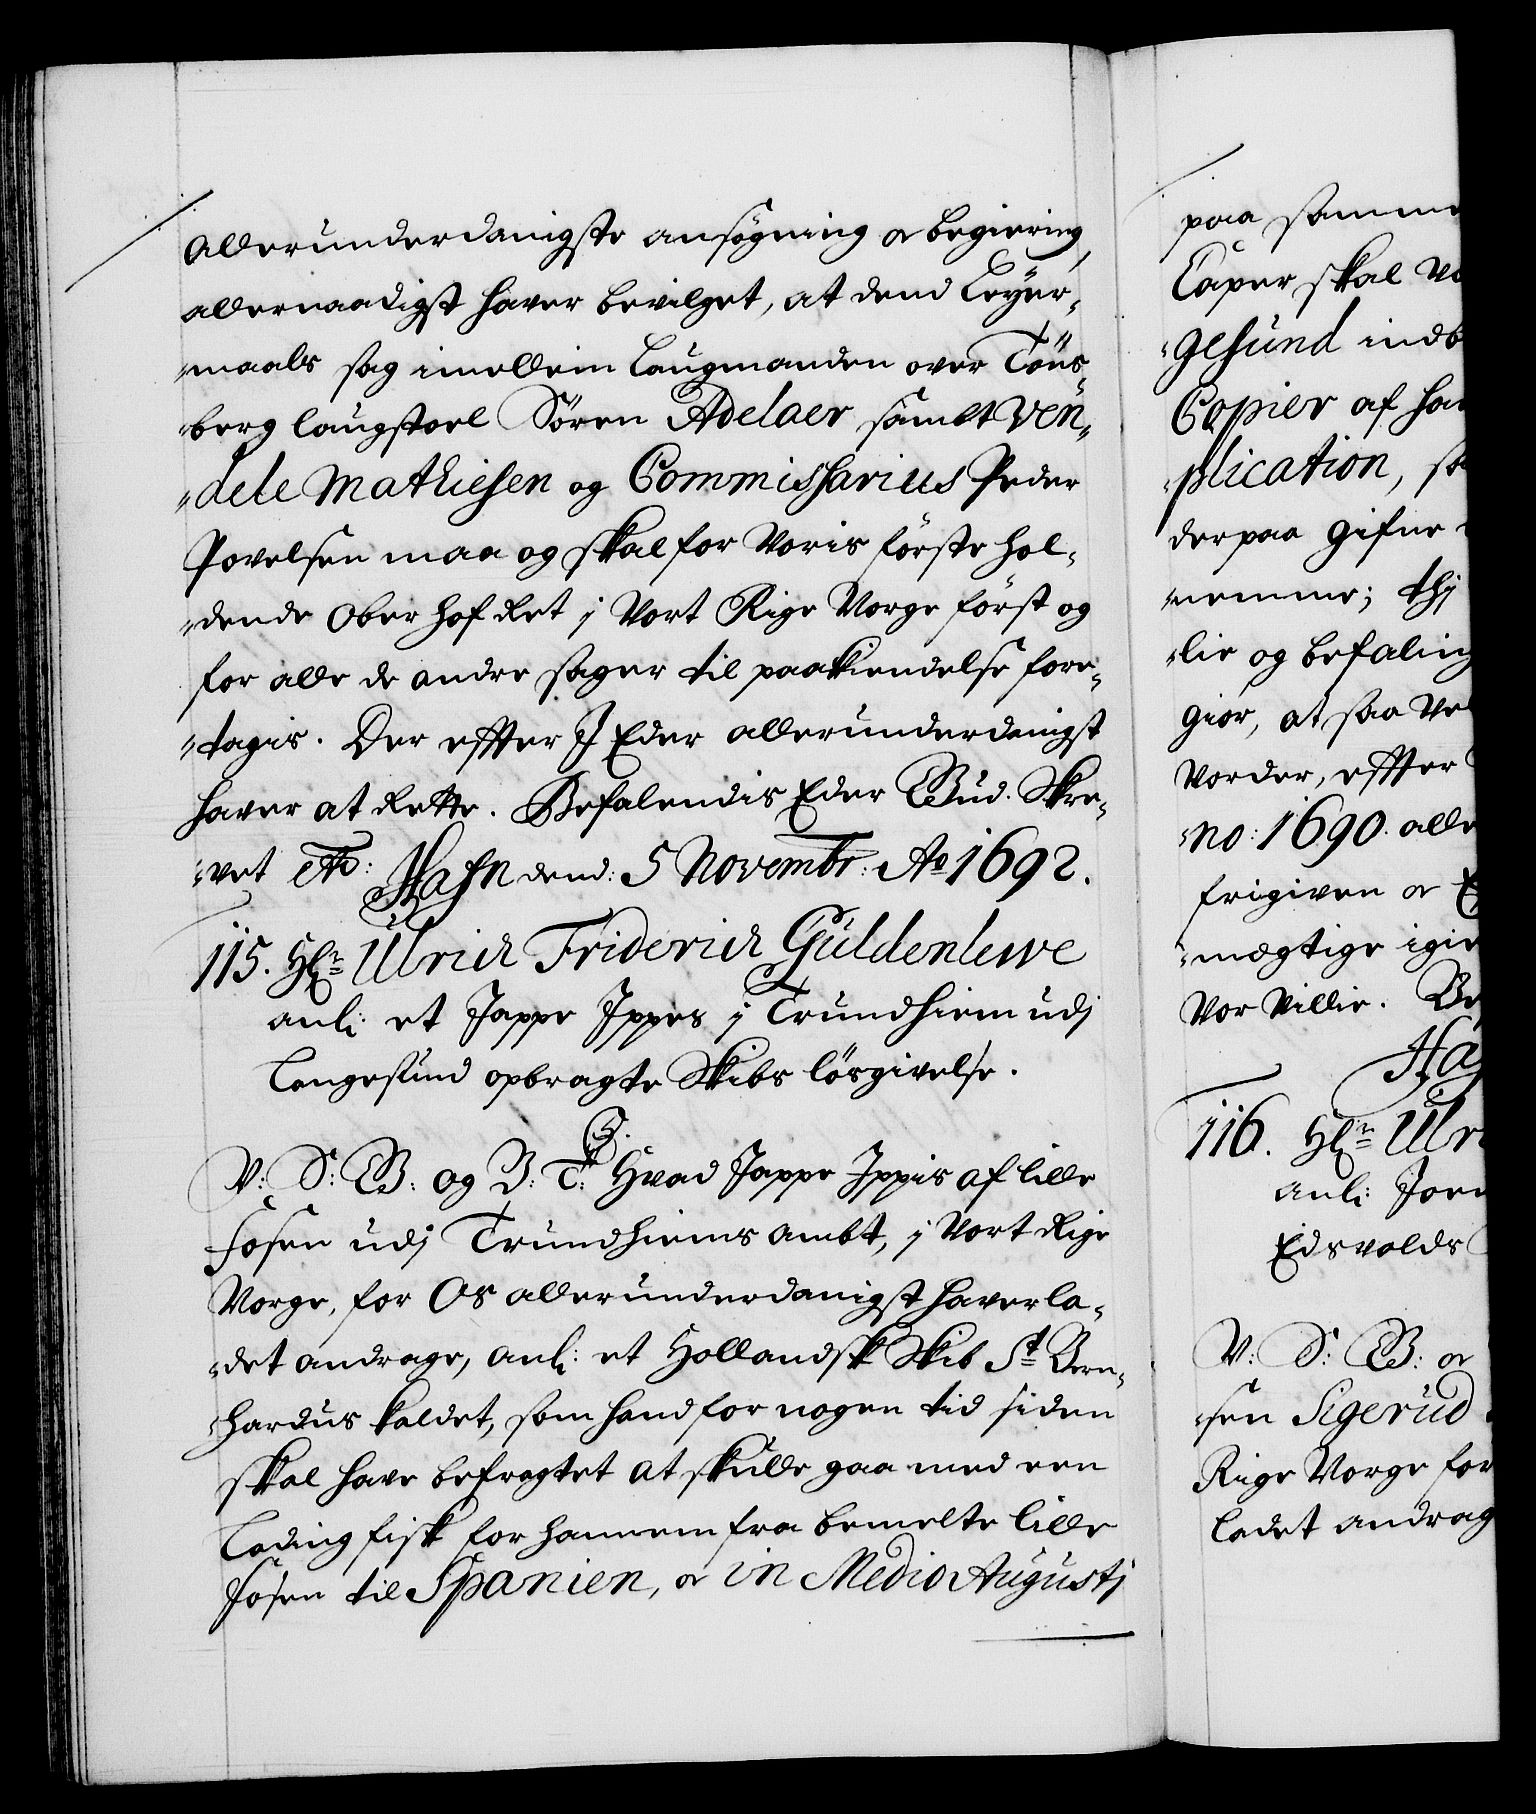 allerunderdanigste ansøgning oc begiering,
allernaadigst haver bevilget, at dend Leyer-
-maals sag imellem Laugmanden over Tøns-
-berg laugstoel Søren Adelaer sambt Ven-
-dele Mathiesen og Commissarius Peder
Povelsen maa og skal for Voris første hol-
-dende Ober Hof Ret j Vort Rige Norge først og
for alle de andre sager til paakiendelse fore-
-tagis. Der effter J Eder allerunderdanigst
haver at Rette. Befalendis Eder Gud. Skre-
-vet etc: Hafn dend: 5 Novembr: Ao 1692.
115. Hr: Ulrich Friderich Güldenlewe
anl: et Jappe Ippes j Trundhiem udj
Langesund opbragte Skibs løsgivelse.
C5.
V: S: G: og V: T: Hvad Jappe Ippis af lille
Fosen udj Trundhiems ambt, j Vort Rige
Norge, for Os allerunderdanigst haver la-
-det andrage, anl: et Hollandsk Skib St Bern-
-hardus kaldet, som hand for nogen tid siden
skal have befragtet at skulle gaa med een
Lading fisk for hannem fra bemelte lille
Fosen til Spanien, oc in Medio Augustj
paa samme
Caper skal
-gesund indb
Copier af ha
-plication, 
derpaa gifne
-nemme; thj
-lie og befaling
giør, at saa
vorder, effter
-no: 1690. alle
frigiven oc
-mægtige igie
Vor Villie.
Ha
116. Hr: Ulr
anl:
Eidsvolds
V: S: G: oc
-sen Sigerud
Rige Norge for
ladet andrag